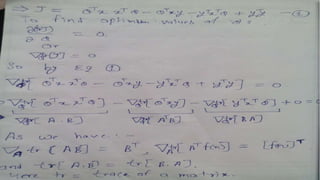 ⇒ J = θᵀx xᵀθ − θᵀxy − yᵀxᵀθ + yᵀy — ①
To find optimum values of θ:
∂J(θ)/∂θ = 0.
or
= 0
So by Eq ①
[θᵀx xᵀθ − θᵀxy − yᵀxᵀθ + yᵀy] = 0
[θᵀx xᵀθ] − [θᵀxy] − [yᵀxᵀθ] + 0 = 0
[A.B] [AᵀB] [BA]
As we have :-
∇_A tr[AB] = Bᵀ, ∇_Aᵀ [Aᵀf(n)] = [f(n)]ᵀ
and tr[A.B] = tr[B.A].
Here tr = trace of a matrix.